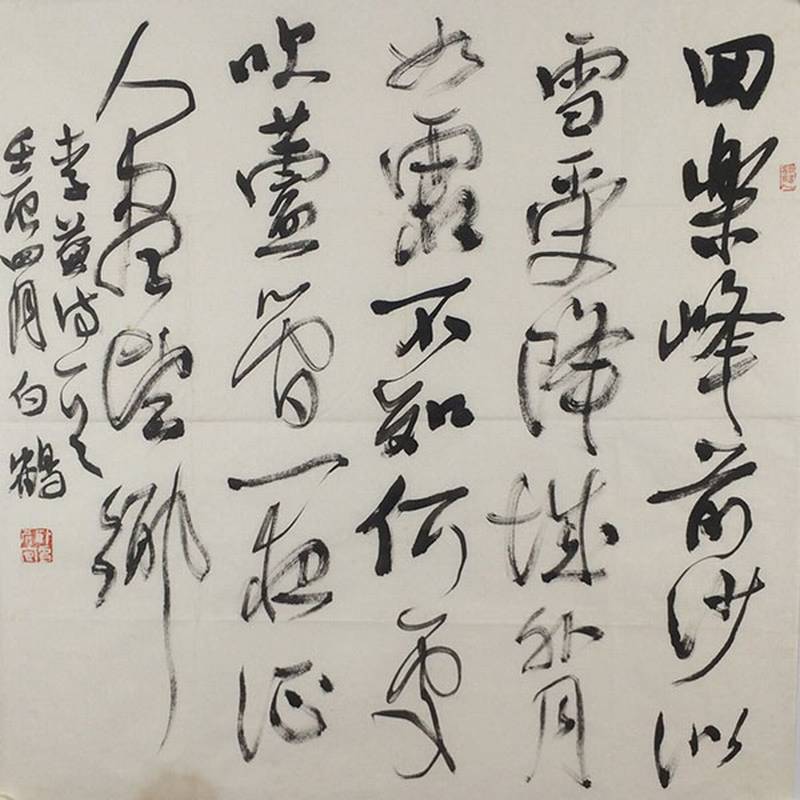 回樂峰前沙似
雪受降城外月
如霜不知何處
吹蘆管一夜征
人盡望鄉
李益诗一首
壬辰四月白鶴